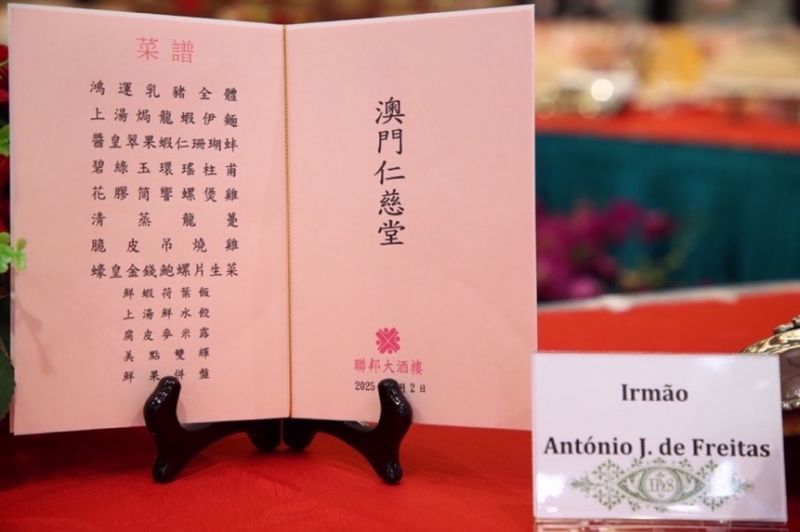 菜譜
鴻運乳豬全體
上湯焗龍蝦伊麵
醬皇翠果蝦仁珊瑚蚌
碧綠玉環瑤柱甫
花膠筒響螺煲雞
清蒸龍躉
脆皮吊燒雞
蠔皇金錢鮑螺片生菜
鮮蝦荷葉飯
上湯鮮水餃
腐皮麥米露
美點雙輝
鮮果併盤
澳門仁慈堂
聯邦大酒樓
2025 月2日
Irmão
António J. de Freitas